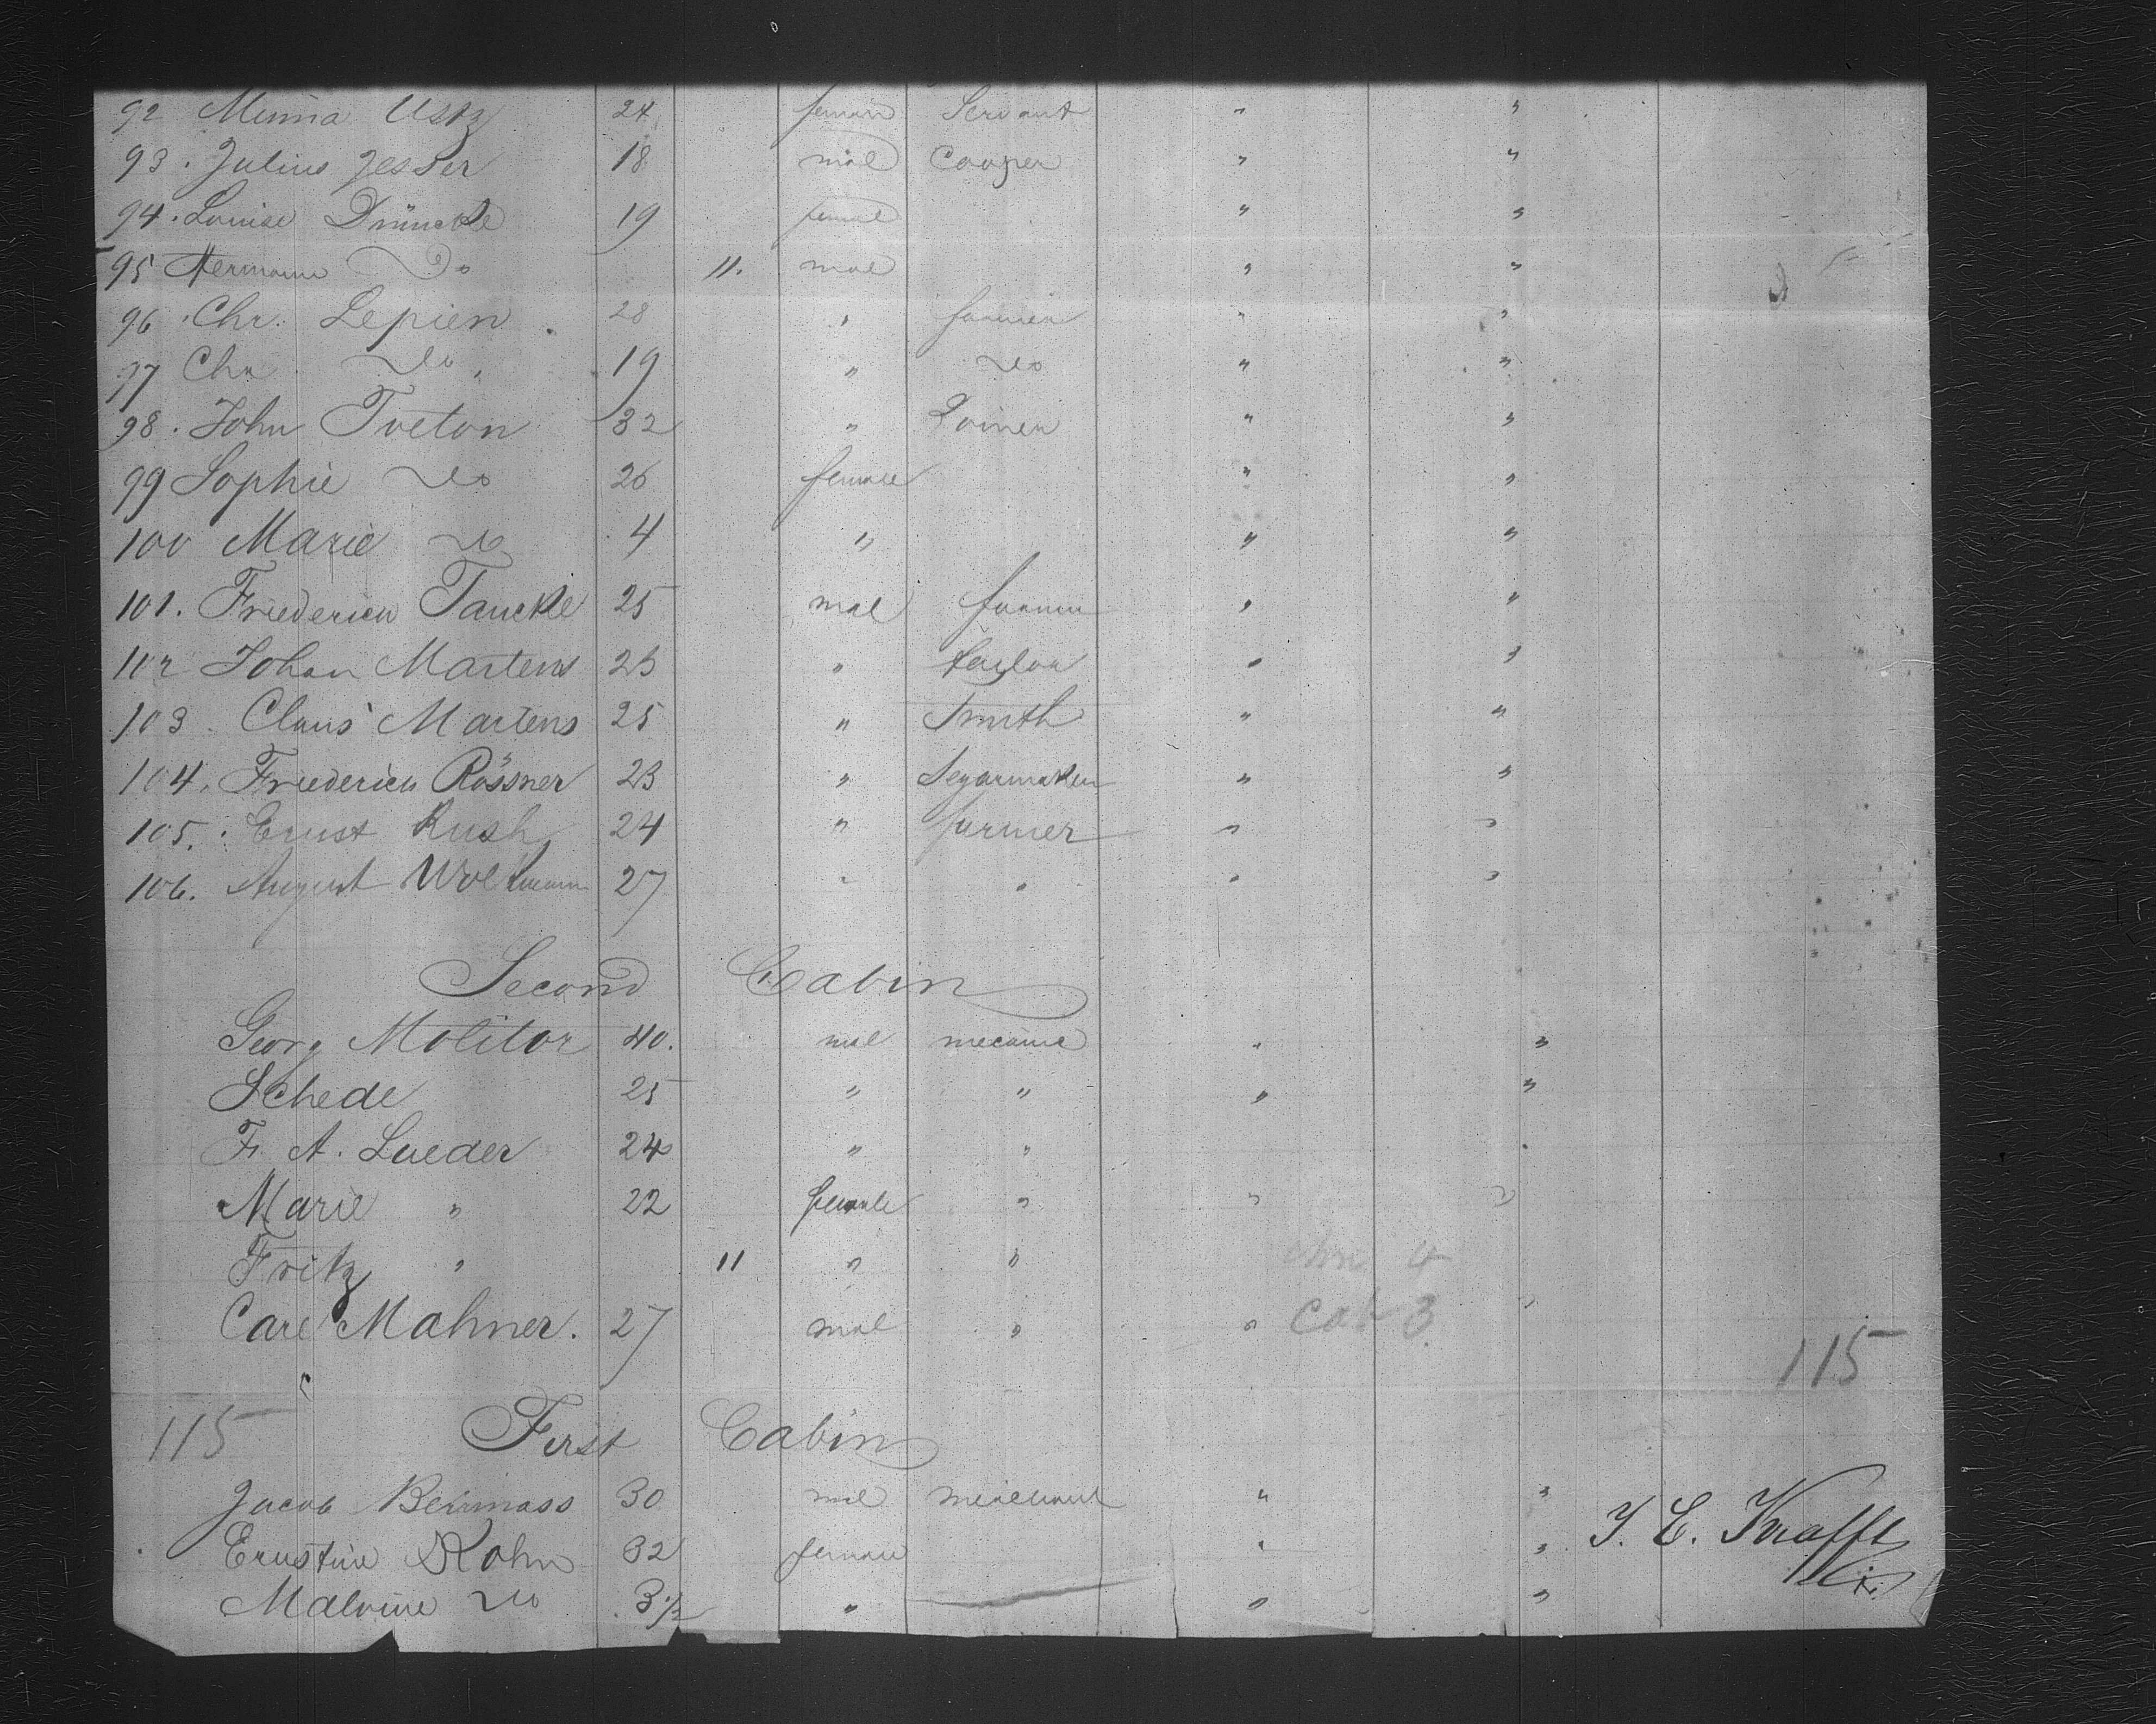 92 Minna Ustz 24 female Servant " "
93. Julius Jesser 18 male Cooper " "
94. Louise Drünckle 19 female " "
95 Hermann Do 11. male " "
96. Chr. Lepien 28 " farmer " "
97 Chr Do 19 " Do " "
98. John Tveton 32 " Joiner " "
99 Sophie Do 26 female " "
100 Marie Do 4 " " "
101. Friederich Tanckle 25 male farmer " "
102 Johan Martens 23 " taylor " "
103. Claus Martens 25 " Smith " "
104. Friederich Rössner 23 " Segarmaker " "
105. Ernst Rush 24 " farmer " "
106. August Woltmann 27 " " " "
Second Cabin
Georg Molitor 40. male mecanic " "
Schede 25 " " " "
F. A. Lueder 24 " " "
Marie " 22 female " " "
Fritz " 11 " " 4
Carl Mahner. 27 male " " Cab 3 "
115
115 First Cabin
Jacob Bermass 30 male merchant " "
J. C. Knafft
Ernstine Kohn 32 female " "
Malvine Do 3½ " " "